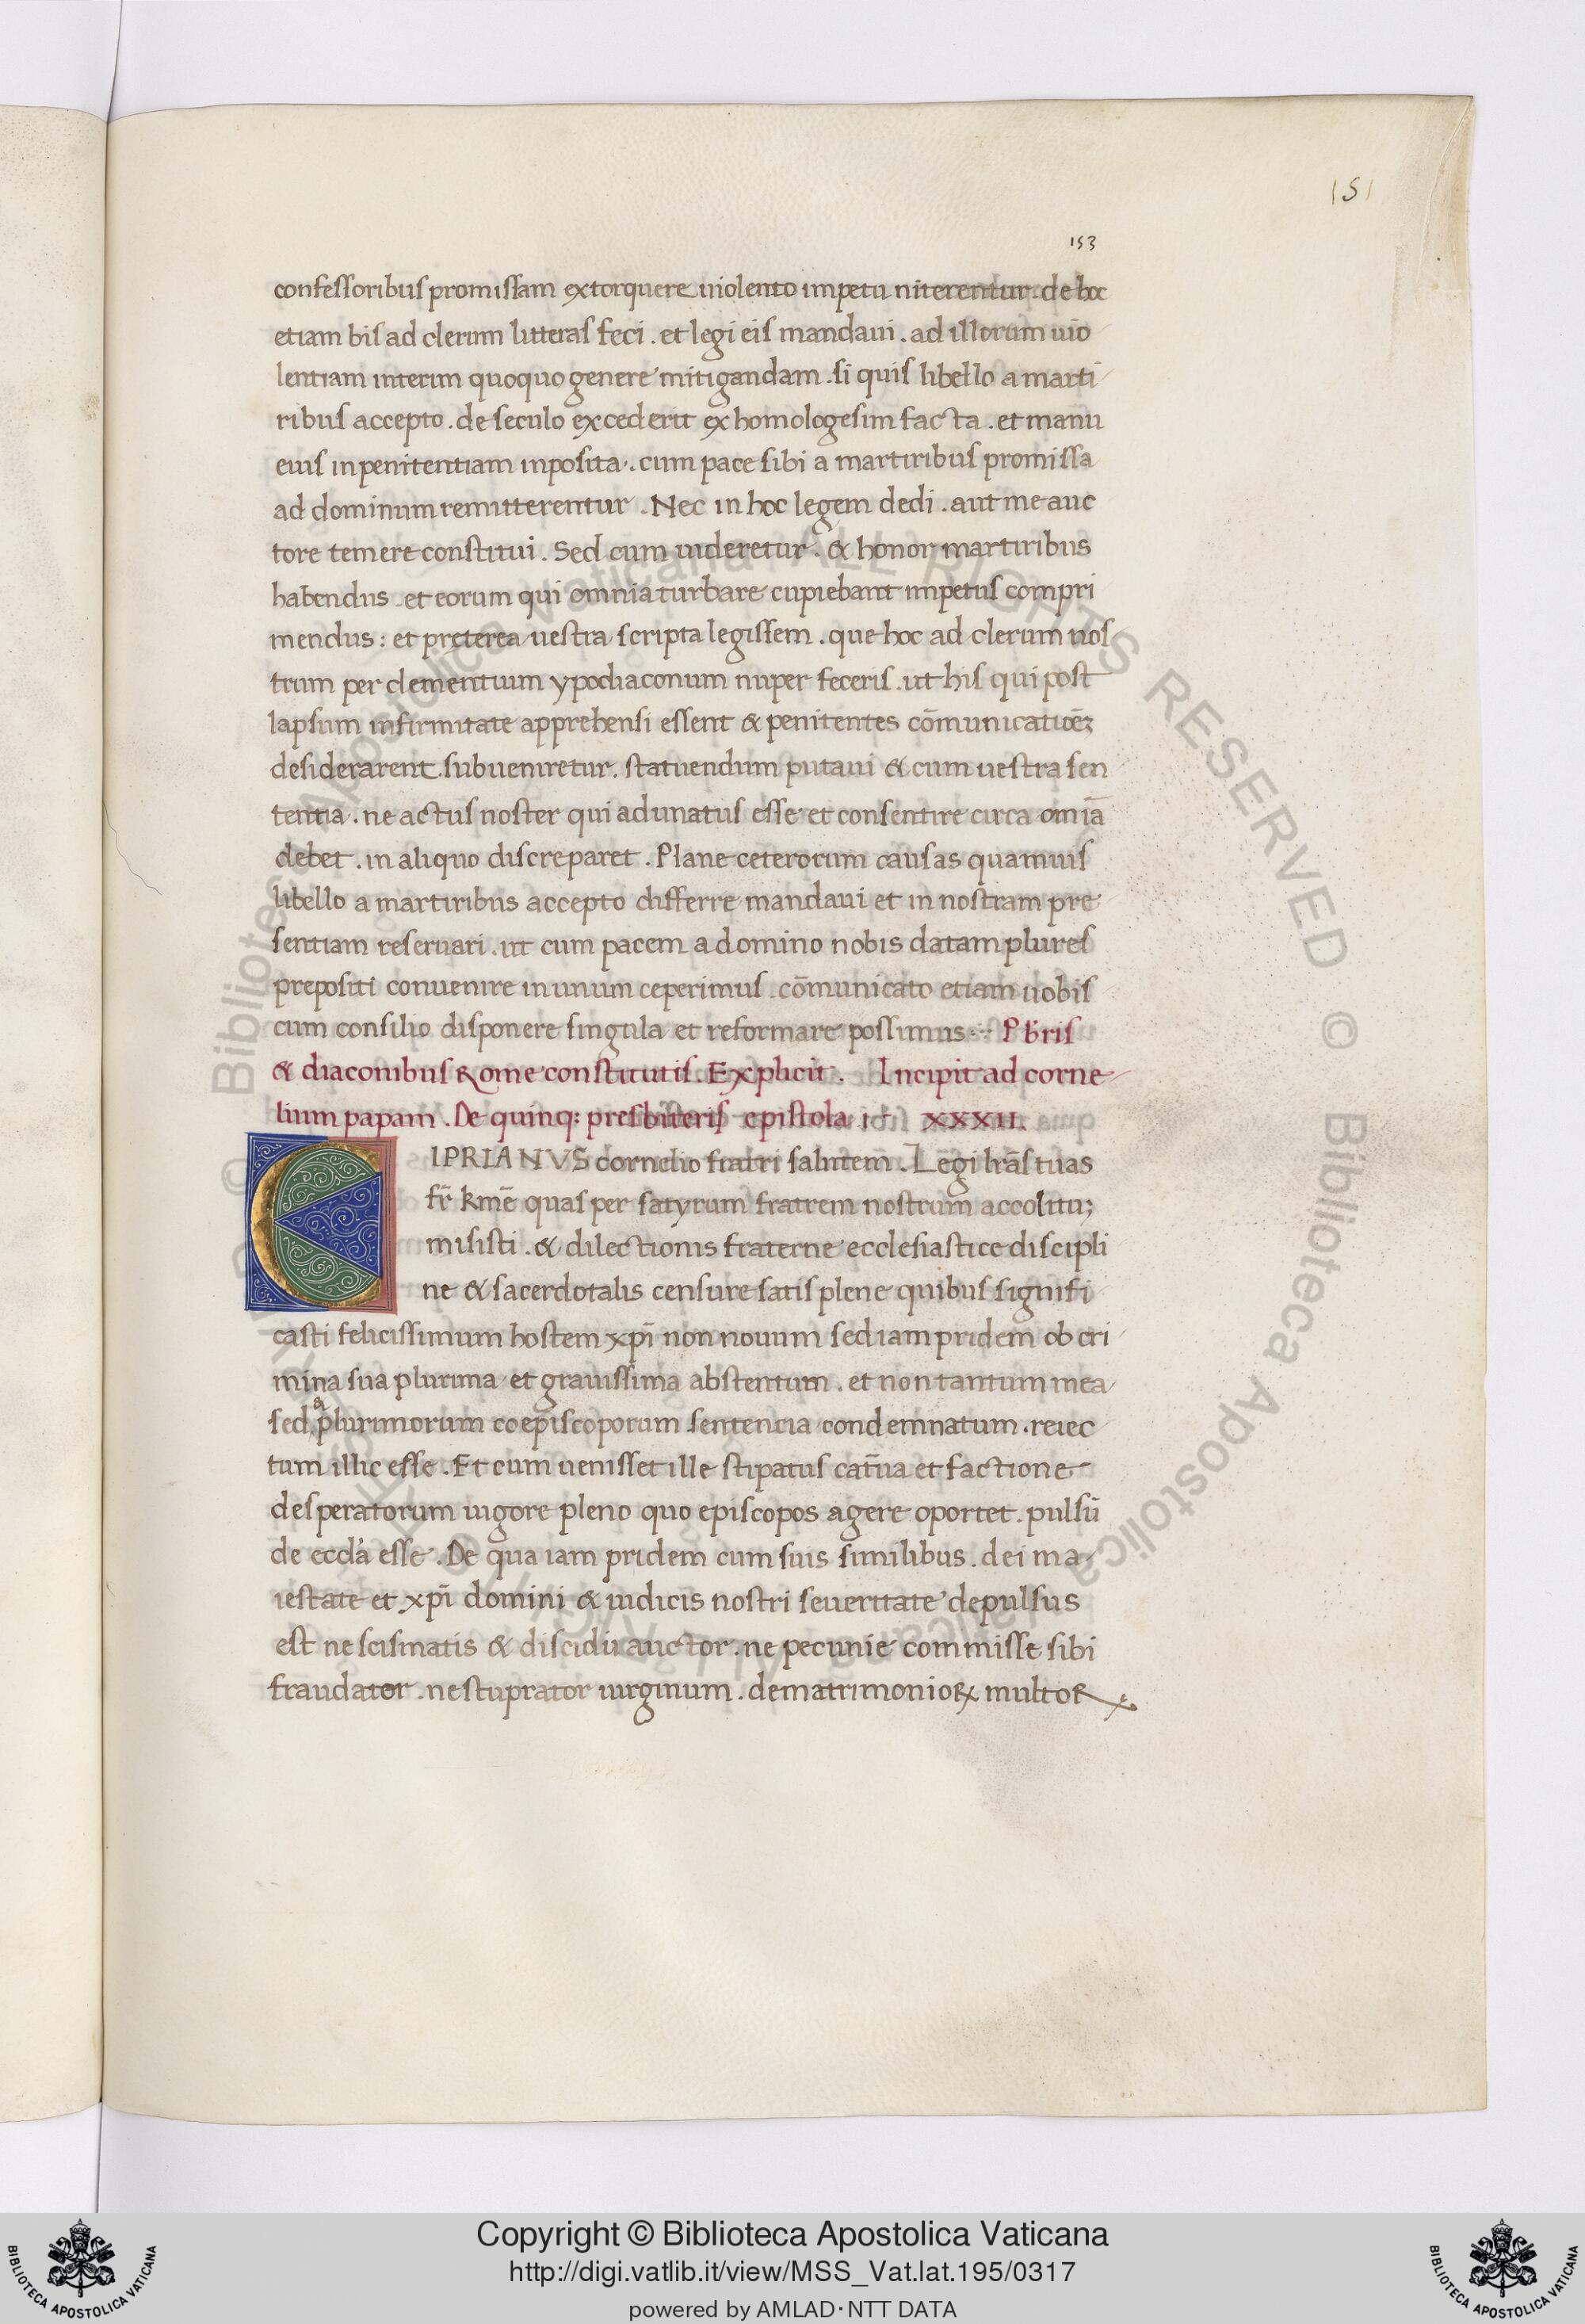 151
153
confessoribus promissam extorquere uiolento impetu niterentur. de hoc
etiam bis ad clerum litteras feci. et legi eis mandaui. ad illorum uio
lentiam interim quoquo genere mitigandam. si quis libello a marti
ribus accepto. de seculo excederit ex homologesim facta. et manu
eius in penitentiam inposita. cum pace sibi a martiribus promissa
ad dominum remitterentur. Nec in hoc legem dedi. aut me auc
tore temere constitui. Sed cum uideretur. & honor martiribus
habendus. et eorum qui omnia turbare cupiebant impetus compri
mendus: et pręterea uestra scripta legissem. que hoc ad clerum nos
trum per clementium ypodiaconum nuper feceris. ut his qui post
lapsum infirmitate apprehensi essent & penitentes cōmunicatiōēz
desiderarent. subueniretur. statuendum putaui & cum uestra sen
tentia. ne actus noster qui adunatus esse et consentire circa omīa
debet. in aliquo discreparet. Plane ceterorum causas quamuis
libello a martiribus accepto differre mandaui et in nostram pre
sentiam reseruari. ut cum pacem a domino nobis datam plures
prepositi conuenire in unum ceperimus. cōmunicato etiam uobis
cum consilio disponere singula et reformare possimus. Pb̄ris
& diaconibus Rome constitutis. Explicit. Incipit ad corne
lium papam. De quinq: presbiteris epistola i XXXII.
CIPRIANVS cornelio fratri salutem. Legi lr̄as tuas
fr̄ kmē quas per satyrum fratrem nostrum accolitu;
misisti. & dilectionis fraterne ecclesiastice discipli
ne & sacerdotalis censure satis plene quibus signifi
casti felicissimum hostem xpī non nouum sed iam pridem ob cri
mina sua plurima et grauissima abstentum. et non tantum mea
sed & plurimorum coepiscoporum sentencia condemnatum. reiec
tum illic esse. Et cum uenisset ille stipatus cat̄ua et factione
desperatorum uigore pleno quo episcopos agere oportet. pulsū
de eccl'a esse. De qua iam pridem cum suis similibus. dei ma
iestate et xpī domini & iudicis nostri seueritate depulsus
est ne scismatis & discidii auctor. ne pecunie commisse sibi
fraudator. ne stuprator uirginum. de matrimonioꝝ multoꝝ
© Biblioteca Apostolica Vaticana ALL RIGHTS RESERVED © Biblioteca Apostolica
Copyright © Biblioteca Apostolica Vaticana
http://digi.vatlib.it/view/MSS_Vat.lat.195/0317
powered by AMLAD·NTT DATA
BIBLIOTECA APOSTOLICA VATICANA
BIBLIOTECA APOSTOLICA VATICANA